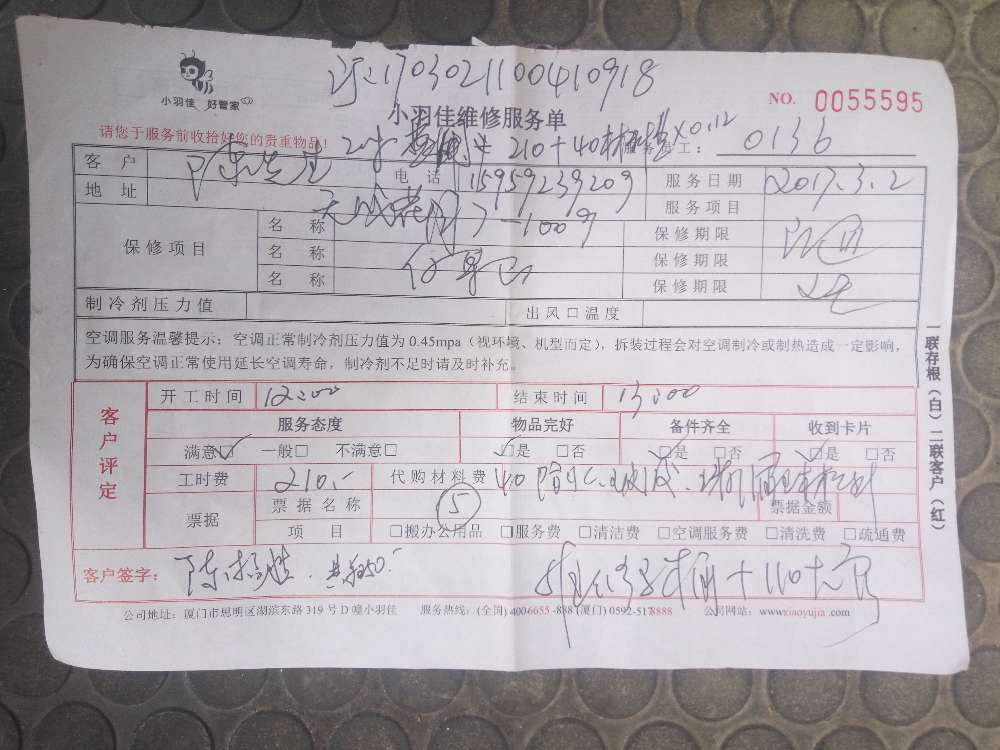 1703021100410918
小羽佳 好管家
小羽佳维修服务单
NO. 0055595
请您于服务前收拾好您的贵重物品!
210+40材料 X0.12
服务员工: 0136
客户 陈先生 电话 15959239209 服务日期 2017.3.2
地址 服务项目
保修项目
名称 保修期限
名称 保修期限
名称 保修期限
制冷剂压力值 出风口温度
空调服务温馨提示: 空调正常制冷剂压力值为 0.45mpa (视环境、机型而定), 拆装过程会对空调制冷或制热造成一定影响,
为确保空调正常使用延长空调寿命, 制冷剂不足时请及时补充。
客户评定
开工时间 12:00 结束时间 13:00
服务态度 物品完好 备件齐全 收到卡片
满意□ 一般□ 不满意□ □是 □否 □是 □否 □是 □否
工时费 210.- 代购材料费 40
票据 票据名称 5 票据金额
项目 □搬办公用品 □服务费 □清洁费 □空调服务费 □清洗费 □疏通费
客户签字: +110
公司地址: 厦门市思明区湖滨东路 319 号 D 幢小羽佳 服务热线: (全国) 4006655-888 (厦门) 0592-5178888 公司网站: www.xiaoyujia.com
一联存根(白)二联客户(红)